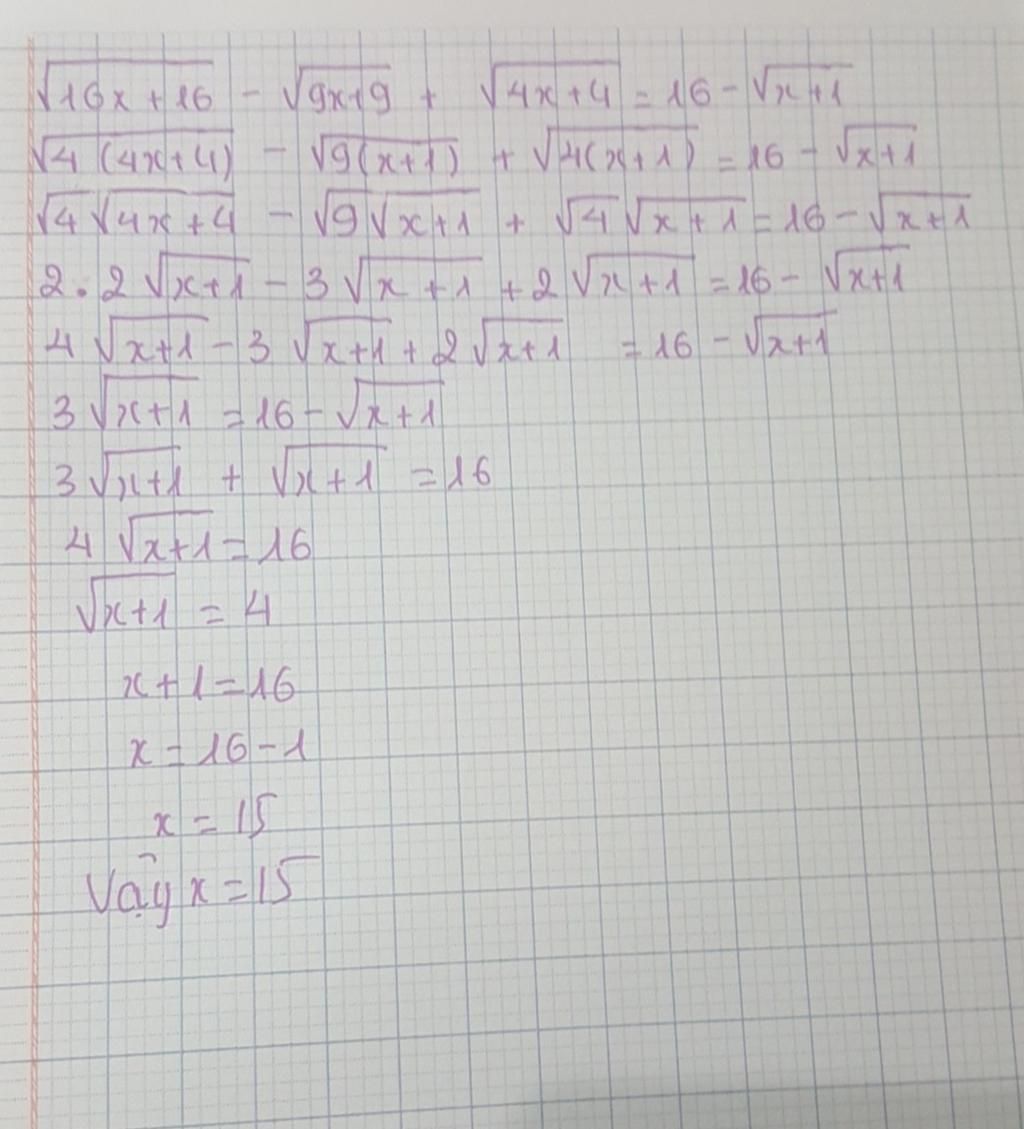 √(16x+16) - √(9x+9) + √(4x+4) = 16 - √(x+1)
√(4(4x+4)) - √(9(x+1)) + √(4(x+1)) = 16 - √(x+1)
√4 √(4x+4) - √9 √(x+1) + √4 √(x+1) = 16 - √(x+1)
2.2√(x+1) - 3√(x+1) + 2√(x+1) = 16 - √(x+1)
4√(x+1) - 3√(x+1) + 2√(x+1) = 16 - √(x+1)
3√(x+1) = 16 - √(x+1)
3√(x+1) + √(x+1) = 16
4√(x+1) = 16
√(x+1) = 4
x+1 = 16
x = 16 - 1
x = 15
Vậy x = 15